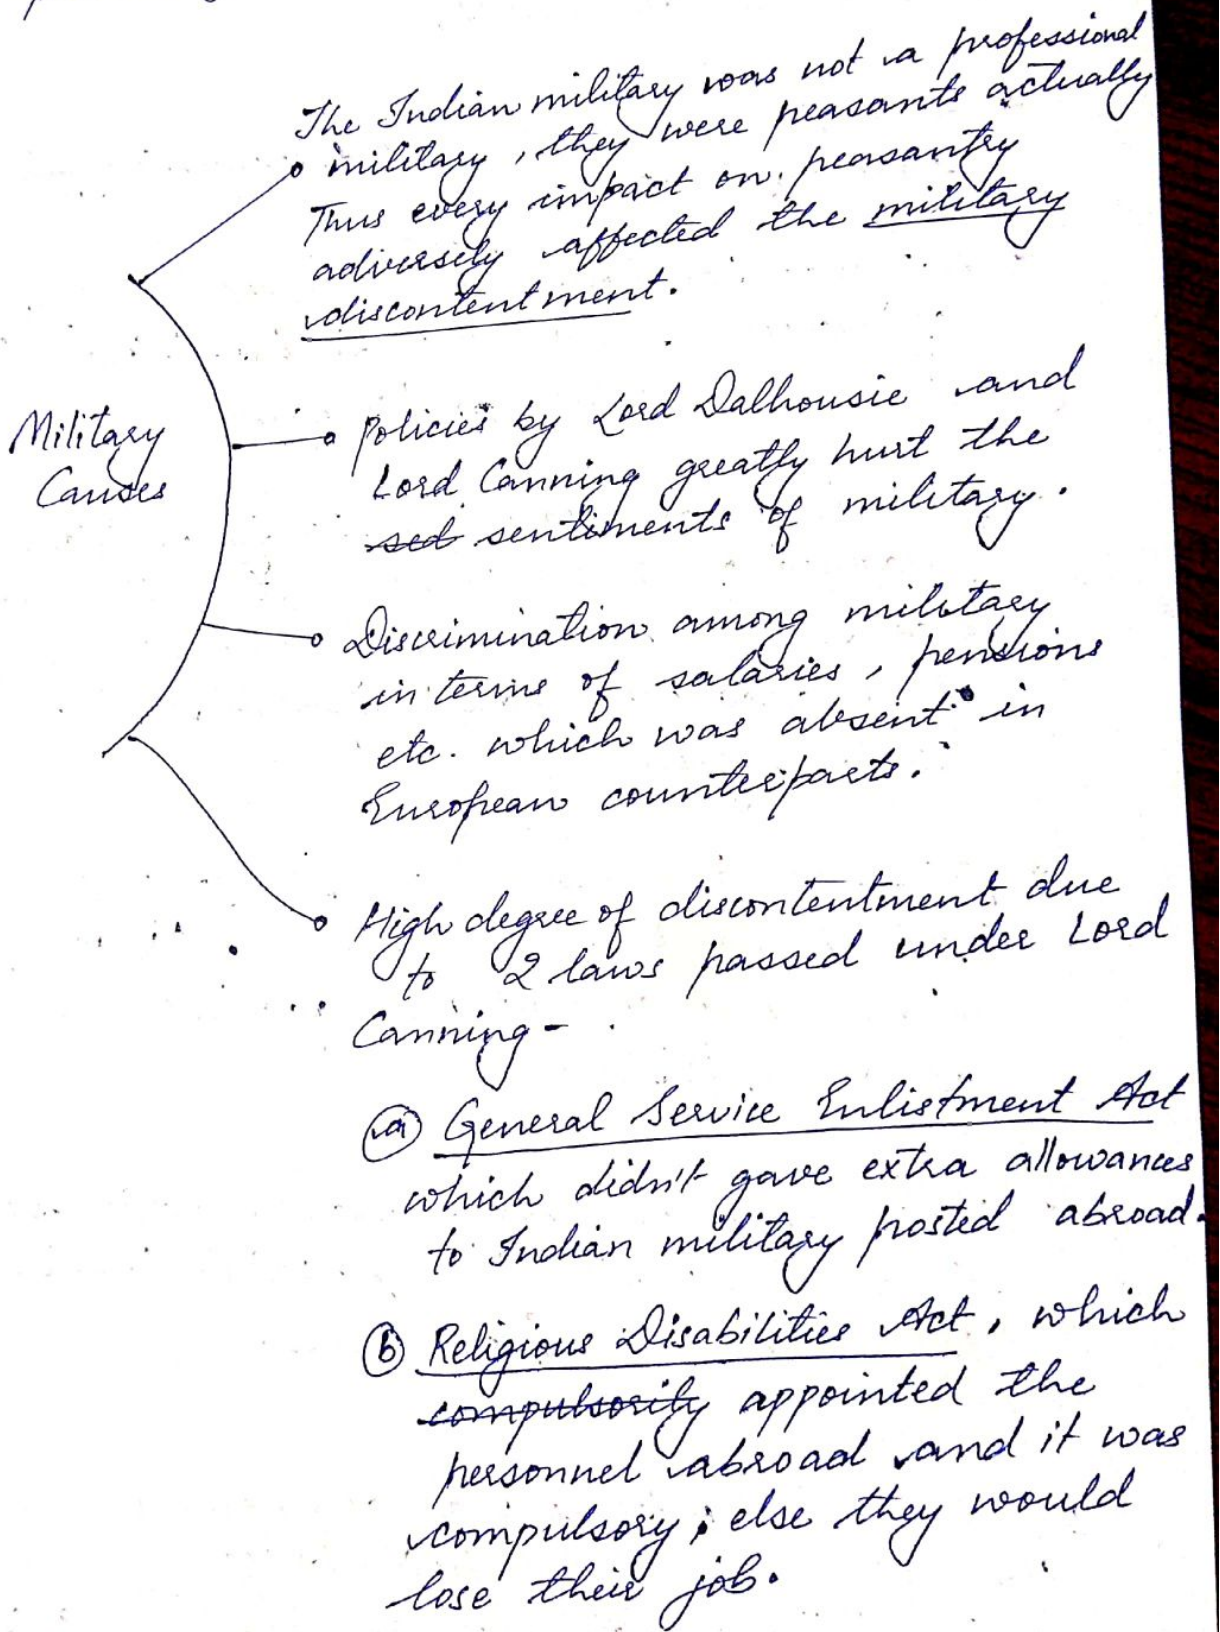 The Indian military was not a professional
military, they were peasants actually
Thus every impact on peasantry
adversely affected the military
discontentment.
Military
Causes
Policies by Lord Dalhousie and
Lord Canning greatly hurt the
sed sentiments of military.
Discrimination among military
in terms of salaries, pensions
etc. which was absent in
European counterparts.
High degree of discontentment due
to 2 laws passed under Lord
Canning-
(a) General Service Enlistment Act
which didn't gave extra allowances
to Indian military posted abroad.
(b) Religious Disabilities Act, which
compulsorily appointed the
personnel abroad and it was
compulsory; else they would
lose their job.